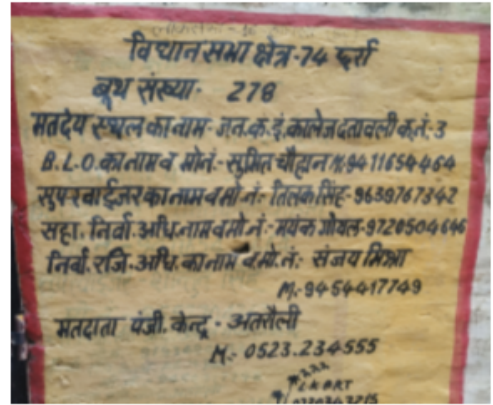 विधान सभा क्षेत्र-74 छर्रा
बूथ संख्या- 278
मतदेय स्थल का नाम- जन.क.इं.कालेज दतावली क.नं.-3
B.L.O. का नाम व मो.नं.- सुमित चौहान M.-9411654464
सुपरवाईजर का नाम व मो नं:- तिलक सिंह-9639767342
सहा. निर्वा. अधि. नाम व मो.नं:- मयंक गोयल-9720504646
निर्वा. रजि. अधि. का नाम व मो.नं.- संजय मिश्रा
M.- 9454417749
मतदाता पंजी. केन्द्र - अतरौली
M.- 0523.234555